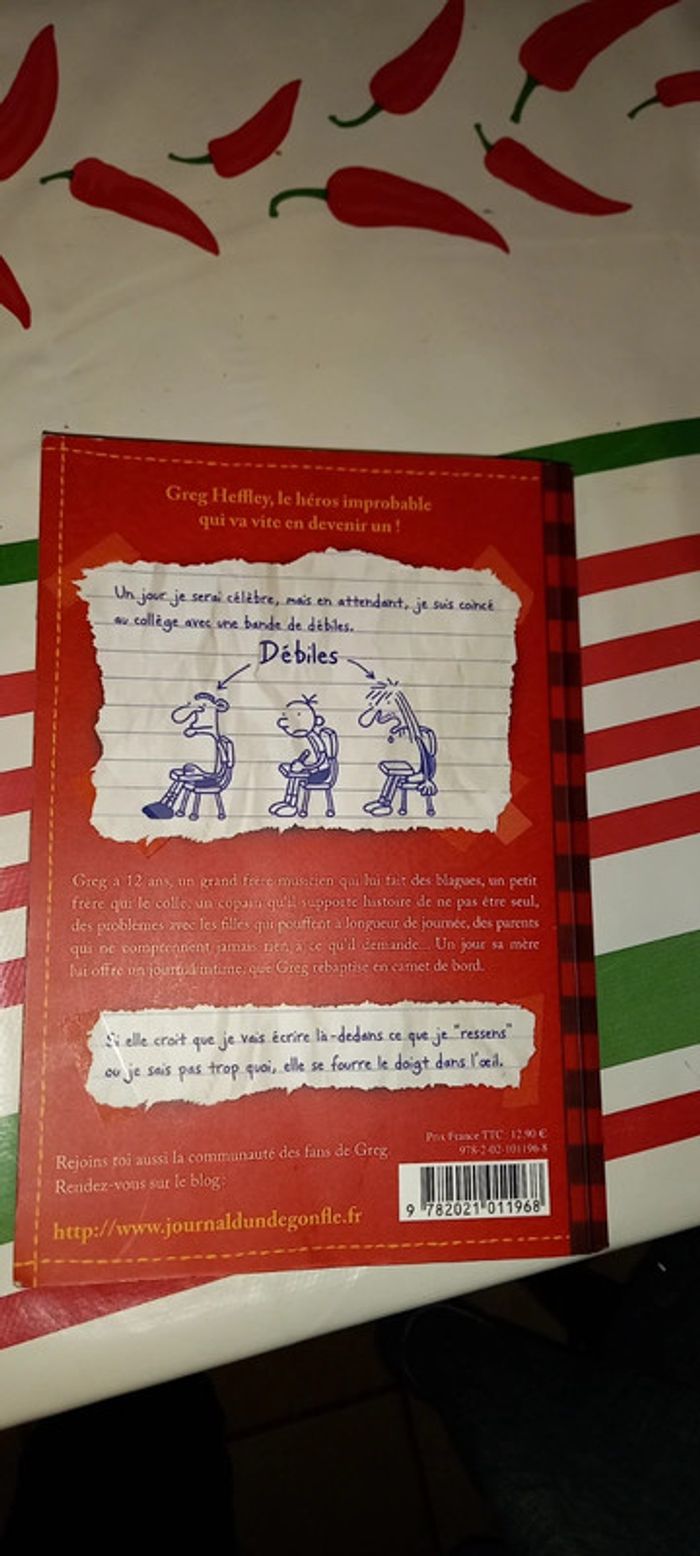 Greg Heffley, le héros improbable
qui va vite en devenir un !
Un jour je serai célèbre, mais en attendant, je suis coincé
au collège avec une bande de débiles.
Débiles
Greg a 12 ans, un grand frère musicien qui lui fait des blagues, un petit
frère qui le colle, un copain qu'il supporte histoire de ne pas être seul,
des problèmes avec les filles qui pouffent à longueur de journée, des parents
qui ne comprennent jamais rien à ce qu'il demande... Un jour sa mère
lui offre un journal intime, que Greg rebaptise en carnet de bord.
Si elle croit que je vais écrire là-dedans ce que je "ressens"
ou je sais pas trop quoi, elle se fourre le doigt dans l'œil.
Rejoins toi aussi la communauté des fans de Greg
Rendez-vous sur le blog:
http://www.journaldundegonfle.fr
Prix France TTC 12.90 €
978-2-02-101196-8
9 782021 011968